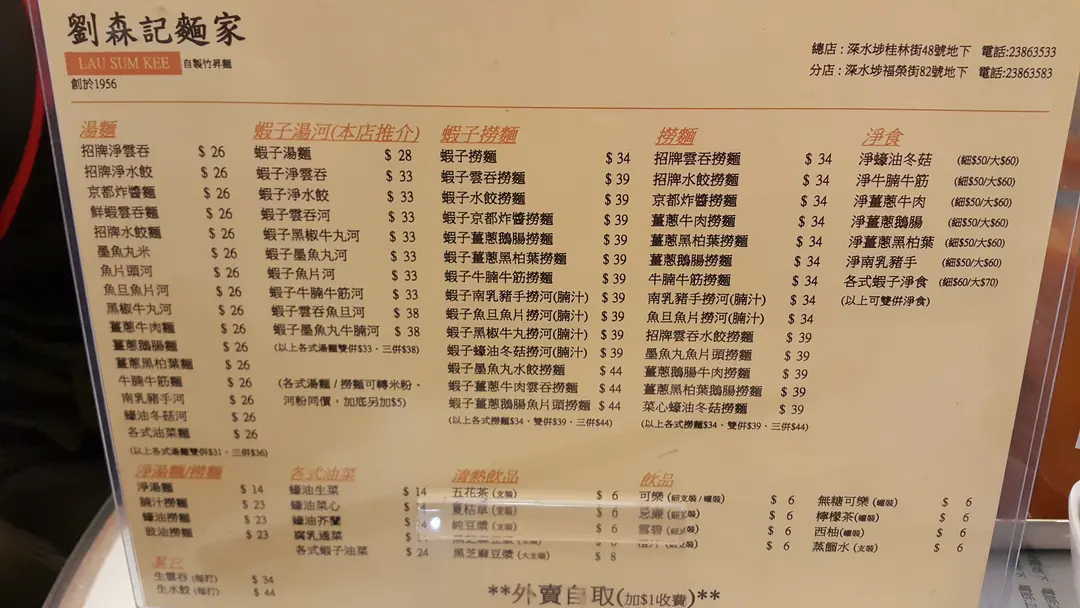 劉森記麵家
LAU SUM KEE 自製竹昇麵
創於1956
總店：深水埗桂林街48號地下 電話:23863533
分店：深水埗福榮街82號地下 電話:23863583
湯麵
招牌淨雲吞 $ 26
招牌淨水餃 $ 26
京都炸醬麵 $ 26
鮮蝦雲吞麵 $ 26
招牌水餃麵 $ 26
墨魚丸米 $ 26
魚片頭河 $ 26
魚旦魚片河 $ 26
黑椒牛丸河 $ 26
薑蔥牛肉麵 $ 26
薑蔥鵝腸麵 $ 26
薑蔥黑柏葉麵 $ 26
牛腩牛筋麵 $ 26
南乳豬手河 $ 26
蠔油冬菇河 $ 26
各式油菜麵 $ 26
(以上各式湯麵雙併$31、三併$36)
蝦子湯河(本店推介)
蝦子湯麵 $ 28
蝦子淨雲吞 $ 33
蝦子淨水餃 $ 33
蝦子雲吞河 $ 33
蝦子黑椒牛丸河 $ 33
蝦子墨魚丸河 $ 33
蝦子魚片河 $ 33
蝦子牛腩牛筋河 $ 33
蝦子雲吞魚旦河 $ 38
蝦子墨魚丸牛腩河 $ 38
(以上各式湯麵雙併$33、三併$38)
(各式湯麵 / 撈麵可轉米粉、
河粉同價，加底另加$5)
蝦子撈麵
蝦子撈麵 $ 34
蝦子雲吞撈麵 $ 39
蝦子水餃撈麵 $ 39
蝦子京都炸醬撈麵 $ 39
蝦子薑蔥鵝腸撈麵 $ 39
蝦子薑蔥黑柏葉撈麵 $ 39
蝦子牛腩牛筋撈麵 $ 39
蝦子南乳豬手撈河(腩汁) $ 39
蝦子魚旦魚片撈河(腩汁) $ 39
蝦子黑椒牛丸撈河(腩汁) $ 39
蝦子蠔油冬菇撈河(腩汁) $ 39
蝦子墨魚丸水餃撈麵 $ 44
蝦子薑蔥牛肉雲吞撈麵 $ 44
蝦子薑蔥鵝腸魚片頭撈麵 $ 44
(以上各式撈麵$34、雙併$39、三併$44)
撈麵
招牌雲吞撈麵 $ 34
招牌水餃撈麵 $ 34
京都炸醬撈麵 $ 34
薑蔥牛肉撈麵 $ 34
薑蔥黑柏葉撈麵 $ 34
薑蔥鵝腸撈麵 $ 34
牛腩牛筋撈麵 $ 34
南乳豬手撈河(腩汁) $ 34
魚旦魚片撈河(腩汁) $ 34
招牌雲吞水餃撈麵 $ 39
墨魚丸魚片頭撈麵 $ 39
薑蔥鵝腸牛肉撈麵 $ 39
薑蔥黑柏葉鵝腸撈麵 $ 39
菜心蠔油冬菇撈麵 $ 39
(以上各式撈麵$34、雙併$39、三併$44)
淨食
淨蠔油冬菇 (細$50/大$60)
淨牛腩牛筋 (細$50/大$60)
淨薑蔥牛肉 (細$50/大$60)
淨薑蔥鵝腸 (細$50/大$60)
淨薑蔥黑柏葉 (細$50/大$60)
淨南乳豬手 (細$50/大$60)
各式蝦子淨食 (細$60/大$70)
(以上可雙併淨食)
淨湯麵/撈麵
淨湯麵 $ 14
腩汁撈麵 $ 23
蠔油撈麵 $ 23
豉油撈麵 $ 23
其它
生雲吞 (每打) $ 34
生水餃 (每打) $ 44
各式油菜
蠔油生菜 $ 14
蠔油菜心 $
蠔油芥蘭 $
腐乳通菜 $
各式蝦子油菜 $ 24
清熱飲品
五花茶 (支裝) $ 6
夏枯草 (支裝) $ 6
純豆漿 (支裝) $ 6
黑芝麻豆漿 (支裝) $ 6
黑芝麻豆漿 (大支裝) $ 8
飲品
可樂 (細支裝 / 罐裝) $ 6
忌廉 (細支裝) $ 6
雪碧 (細支裝) $ 6
橙汁 (細支裝) $ 6
無糖可樂 (罐裝) $ 6
檸檬茶(罐裝) $ 6
西柚(罐裝) $ 6
蒸餾水 (支裝) $ 6
**外賣自取(加$1收費)**